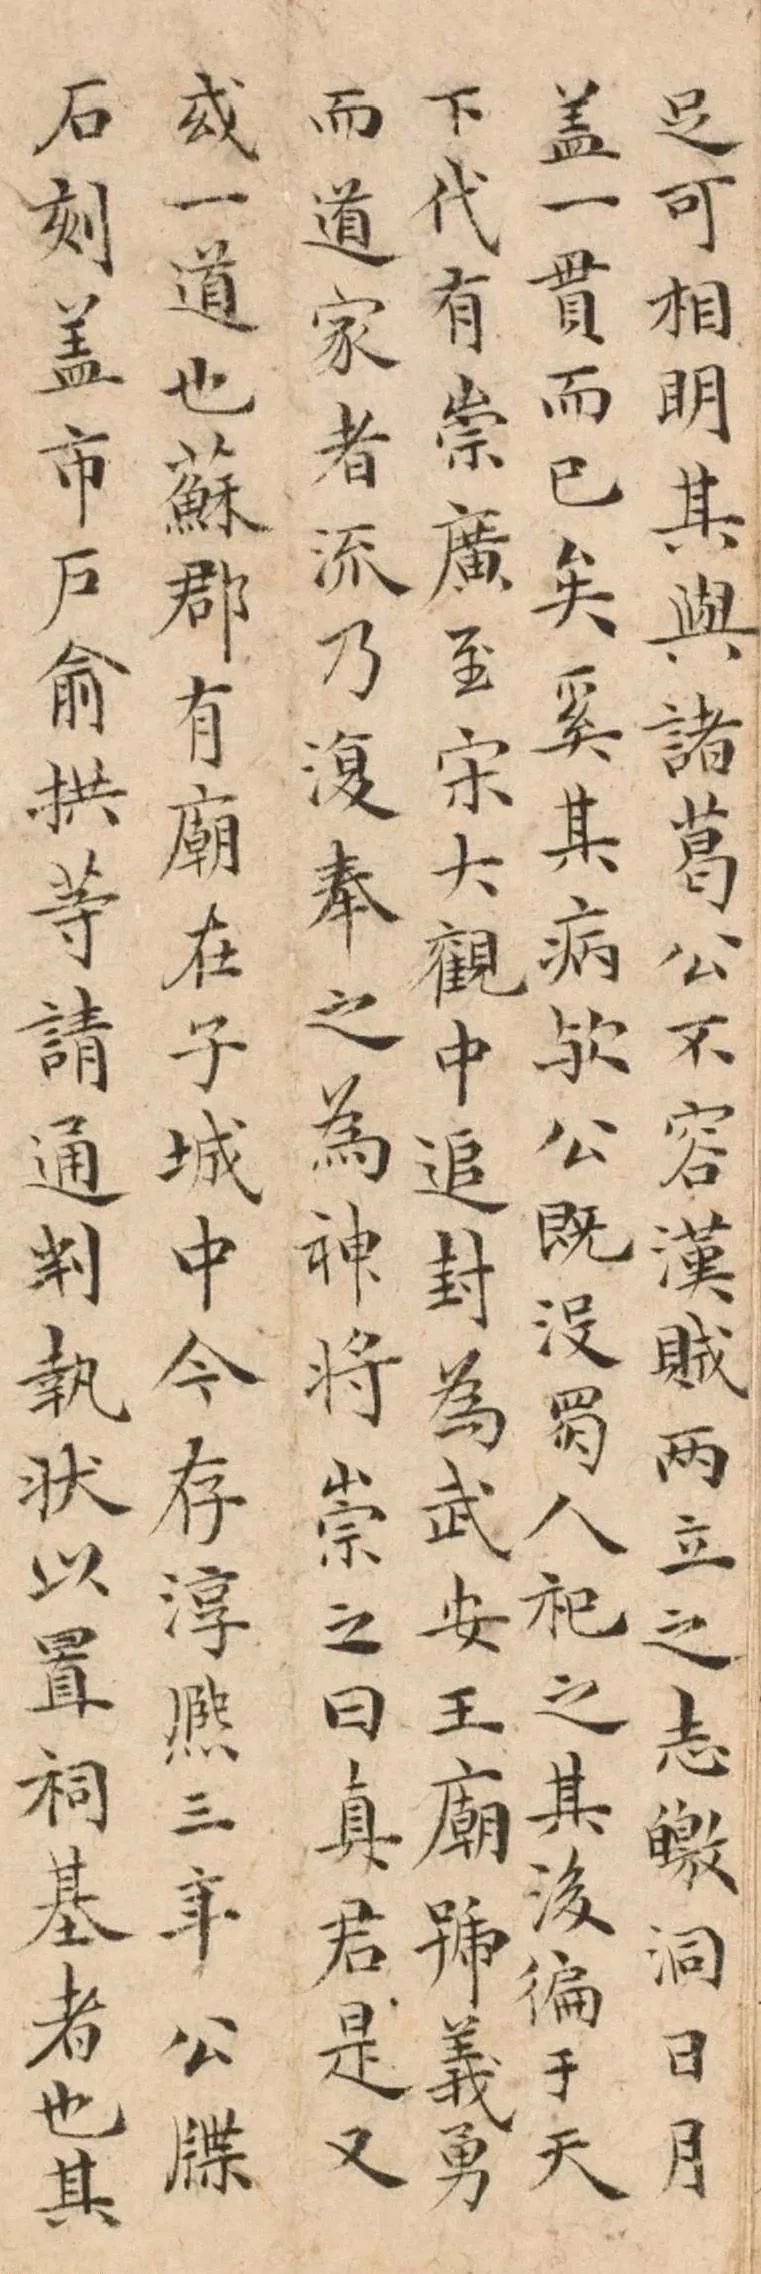 足可相明其與諸葛公不容漢賊兩立之志皦洞日月
盖一貫而已矣奚其病歟公既没蜀人祀之其後徧于天
下代有崇廣至宋大觀中追封為武安王廟號義勇
而道家者流乃復奉之為神將崇之曰真君是又
或一道也蘇郡有廟在子城中今存淳熈三年公牒
石刻盖市戶俞拱等請通判執狀以置祠基者也其